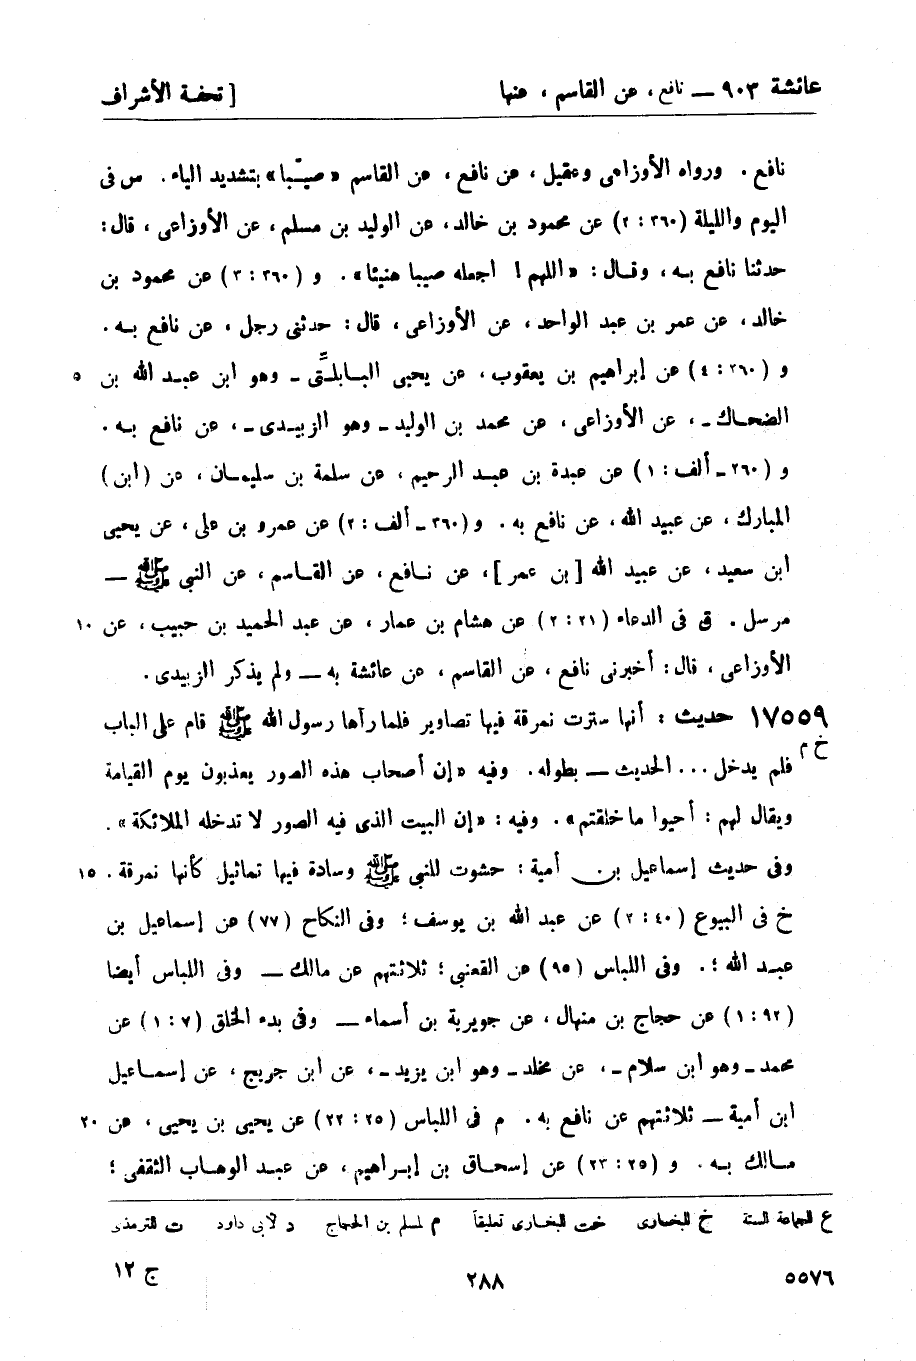 عائشة ٩٠٣ — نافع ، عن القاسم ، عنها [ تحفة الأشراف
نافع . ورواه الأوزاعى وعقيل ، عن نافع ، عن القاسم « صيّبا » بتشديد الياء . س فى
اليوم والليلة (٣٦٠ : ٢) عن محمود بن خالد، عن الوليد بن مسلم، عن الأوزاعى ، قال :
حدثنا نافع بـه ، وقـال : « اللهم ! اجعله صيبا هنيئا» . و (٣٦٠ : ٣) عن محمود بن
خالد، عن عمر بن عبد الواحد، عن الأوزاعى ، قال : حدثنى رجل ، عن نافع بـه .
و (٣٦٠ : ٤) عن إبراهيم بن يعقوب، عن يحيى البـابلـتّى ـ وهو ابن عبـد الله بن ٥
الضحـاك ـ ، عن الأوزاعى ، عن محمد بن الوليد ـ وهو الزبيـدى ـ ، عن نافع بـه .
و (٢٦٠ ـ ألف : ١) عن عبدة بن عبـد الرحيم ، عن سلمة بن سليمـان ، عن (ابن)
المبارك ، عن عبيد الله ، عن نافع به . و (٣٦٠ ـ ألف : ٢) عن عمرو بن على ، عن يحيى
ابن سعيد ، عن عبيد الله [ بن عمر ] ، عن نـافع ، عن القـاسم ، عن النبى ﷺ —
مرسل . ق فى الدعاء (٢١ : ٢) عن هشام بن عمار ، عن عبد الحميد بن حبيب ، عن ١٠
الأوزاعى ، قال : أخبرنى نافع ، عن القاسم ، عن عائشة به — ولم يذكر الزبيدى .
١٧٥٥٩ حديث : أنها سترت نمرقة فيها تصاوير فلما رآها رسول الله ﷺ قام على الباب
خ م فلم يدخل ... الحديث — بطوله . وفيه «إن أصحاب هذه الصور يعذبون يوم القيامة
ويقال لهم : أحيوا ما خلقتم» . وفيه : «إن البيت الذى فيه الصور لا تدخله الملائكة» .
وفى حديث إسماعيل بن أمية : حشوت للنبى ﷺ وسادة فيها تماثيل كأنها نمرقة . ١٥
خ فى البيوع (٤٠ : ٢) عن عبد الله بن يوسف ؛ وفى النكاح (٧٧) عن إسماعيل بن
عبـد الله ؛ . وفى اللباس (٩٥) عن القعنبى ؛ ثلاثتهم عن مالك — وفى اللباس أيضا
(٩٢ : ١) عن حجاج بن منهال ، عن جويرية بن أسماء — وفى بدء الخلق (٧ : ١) عن
محمد ـ وهو ابن سلام ـ ، عن مخلد ـ وهو ابن يزيد ـ ، عن ابن جريج ، عن إسمـاعيل
ابن أمية — ثلاثتهم عن نافع به . م فى اللباس (٢٥ : ٢٢) عن يحيى بن يحيى ، عن ٢٠
مـالك بـه . و (٢٥ : ٢٣) عن إسحاق بن إبـراهيم ، عن عبـد الوهاب الثقفى ؛
ع للجماعة الستة خ للبخارى خت للبخارى تعليقاً م لمسلم بن الحجاج د لأبى داود ت للترمذى
٥٥٧٦ ٢٨٨ ج ١٢